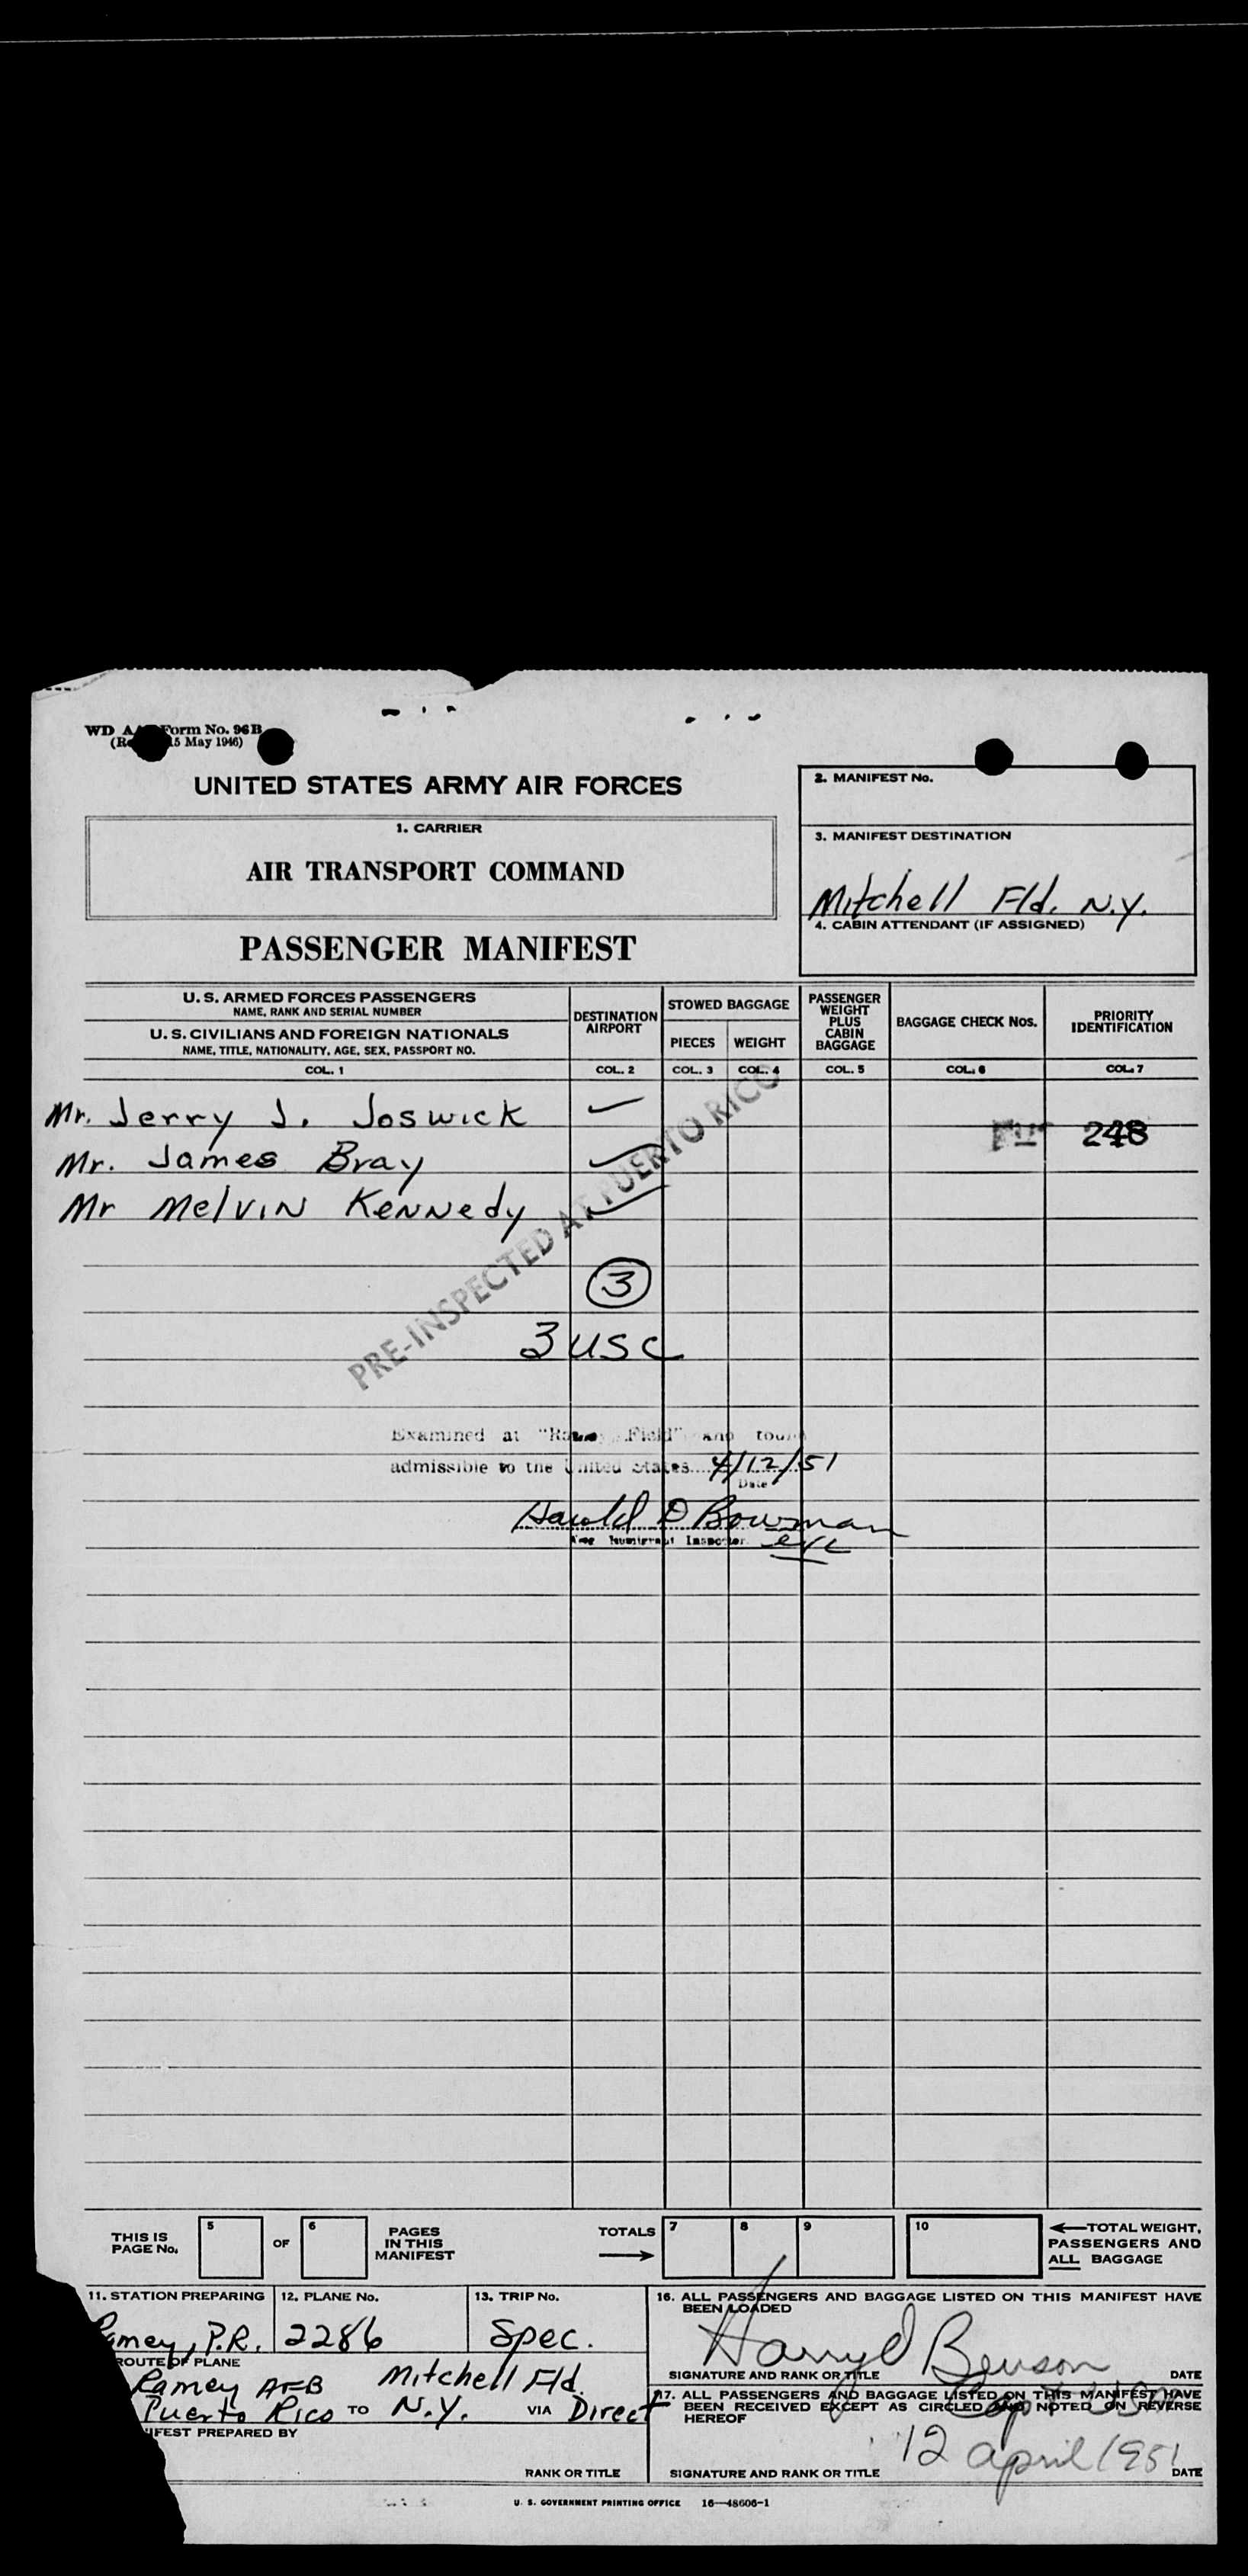 WD AAF Form No. 96B
(Rev. 15 May 1946)
UNITED STATES ARMY AIR FORCES
1. CARRIER
AIR TRANSPORT COMMAND
PASSENGER MANIFEST
2. MANIFEST No.
3. MANIFEST DESTINATION
Mitchell Fld. N.Y.
4. CABIN ATTENDANT (IF ASSIGNED)
U. S. ARMED FORCES PASSENGERS
NAME, RANK AND SERIAL NUMBER
U. S. CIVILIANS AND FOREIGN NATIONALS
NAME, TITLE, NATIONALITY, AGE, SEX, PASSPORT NO.
COL. 1
DESTINATION AIRPORT
COL. 2
STOWED BAGGAGE
PIECES
COL. 3
WEIGHT
COL. 4
PASSENGER WEIGHT PLUS CABIN BAGGAGE
COL. 5
BAGGAGE CHECK Nos.
COL. 6
PRIORITY IDENTIFICATION
COL. 7
Mr. Jerry J. Joswick
248
Mr. James Bray
Mr Melvin Kennedy
PRE-INSPECTED AT PUERTO RICO
3
3 USC
Examined at "Ramey Field" and found
admissible to the United States 4/12/51
Date
Harold D Bowman
Immigrant Inspector
THIS IS PAGE No.
5
OF
6
PAGES IN THIS MANIFEST
TOTALS
7
8
9
10
TOTAL WEIGHT, PASSENGERS AND ALL BAGGAGE
11. STATION PREPARING
Ramey, P.R.
12. PLANE No.
2286
13. TRIP No.
Spec.
ROUTE OF PLANE
Ramey AFB Mitchell Fld.
Puerto Rico TO N.Y. VIA Direct
IFEST PREPARED BY
RANK OR TITLE
16. ALL PASSENGERS AND BAGGAGE LISTED ON THIS MANIFEST HAVE BEEN LOADED
Harry d Benson
SIGNATURE AND RANK OR TITLE
DATE
17. ALL PASSENGERS AND BAGGAGE LISTED ON THIS MANIFEST HAVE BEEN RECEIVED EXCEPT AS CIRCLED AND NOTED ON REVERSE HEREOF
Capt
12 april 1951
SIGNATURE AND RANK OR TITLE
DATE
U. S. GOVERNMENT PRINTING OFFICE 16—48606-1